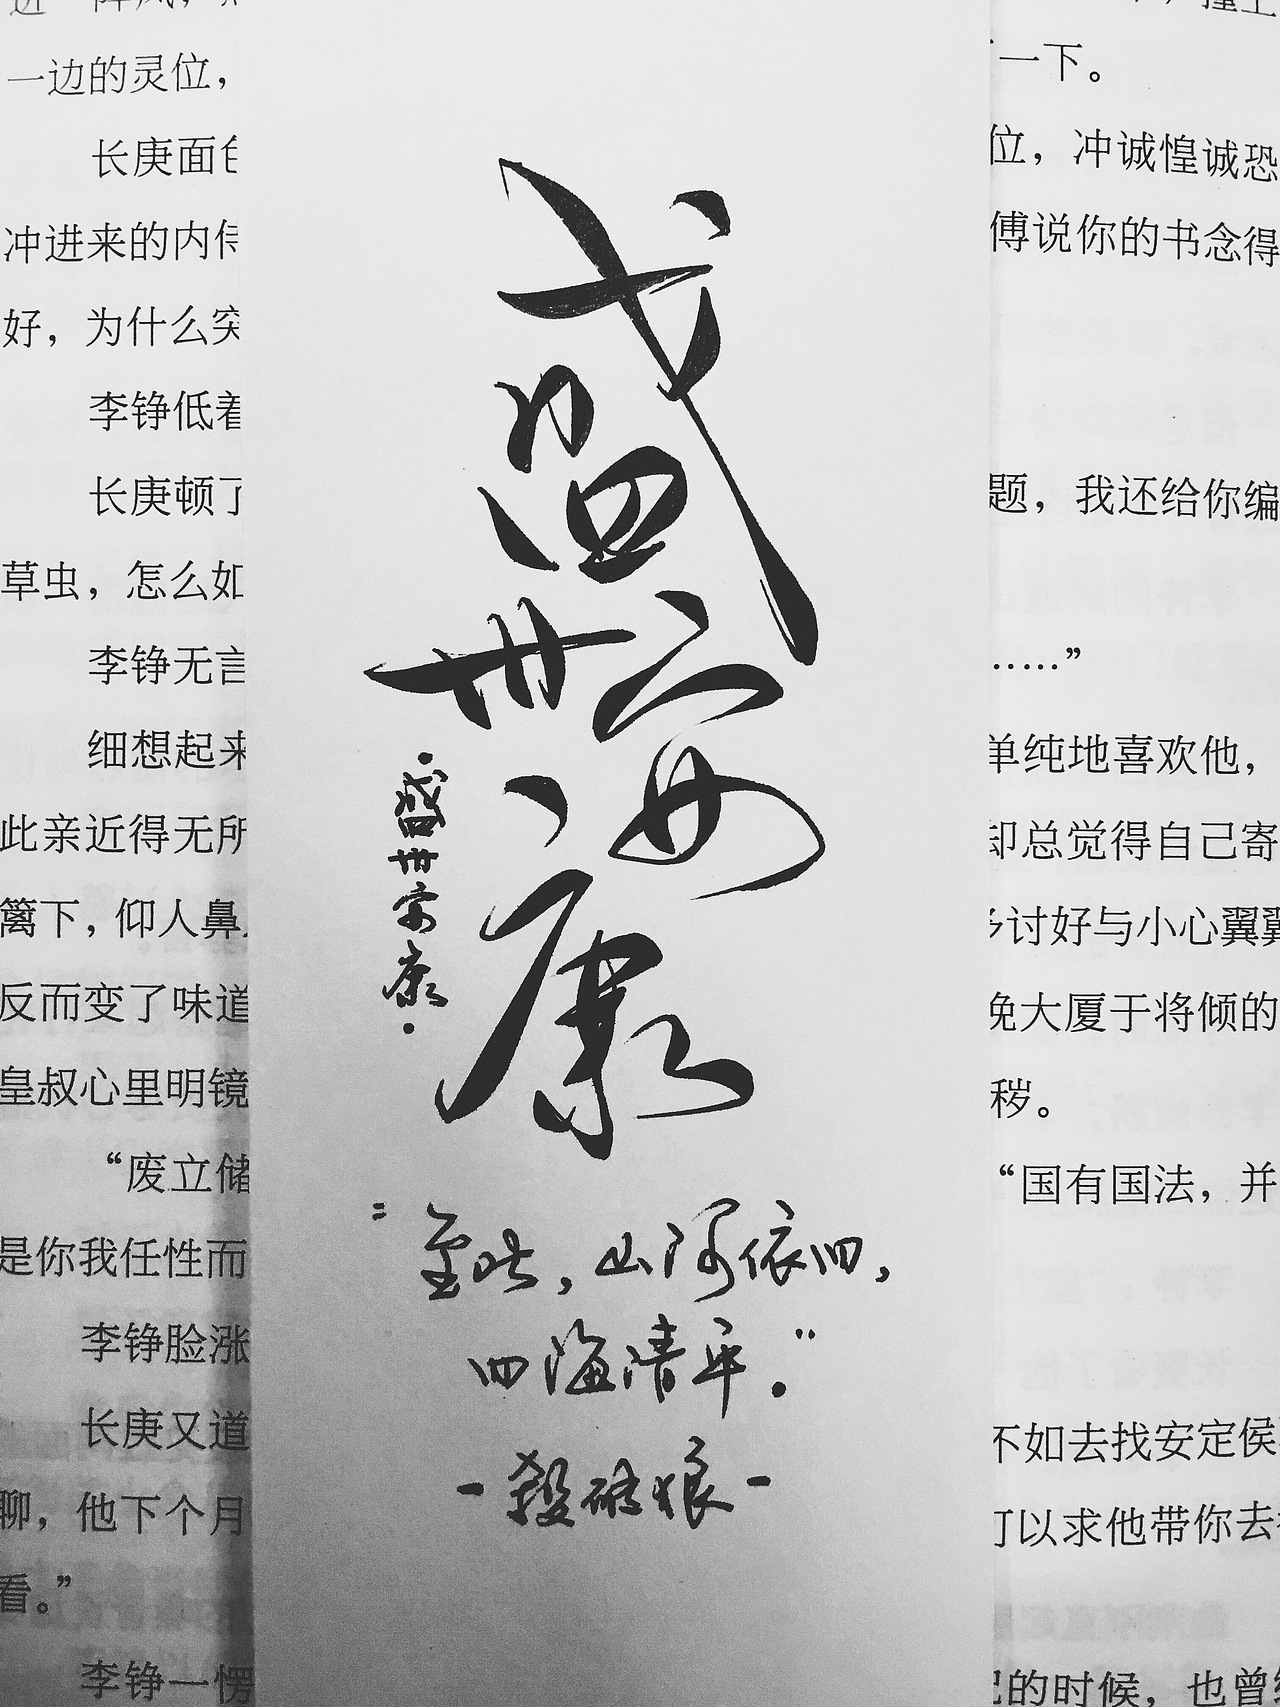 一边的灵位，
长庚面
冲进来的内侍
好，为什么突
李铮低着
长庚顿了
草虫，怎么如
李铮无言
细想起来
此亲近得无所
篱下，仰人鼻
反而变了味道
皇叔心里明镜
“废立储
是你我任性而
李铮脸涨
长庚又道
聊，他下个月
看。”
李铮一愣
盛世安康
·盛世安康·
“至此，山河依旧，
四海清平。”
-殺破狼-
一下。
位，冲诚惶诚恐
傅说你的书念得
题，我还给你编
……”
单纯地喜欢他，
却总觉得自己寄
讨好与小心翼翼
挽大厦于将倾的
秽。
“国有国法，并
不如去找安定侯
可以求他带你去
的时候，也曾